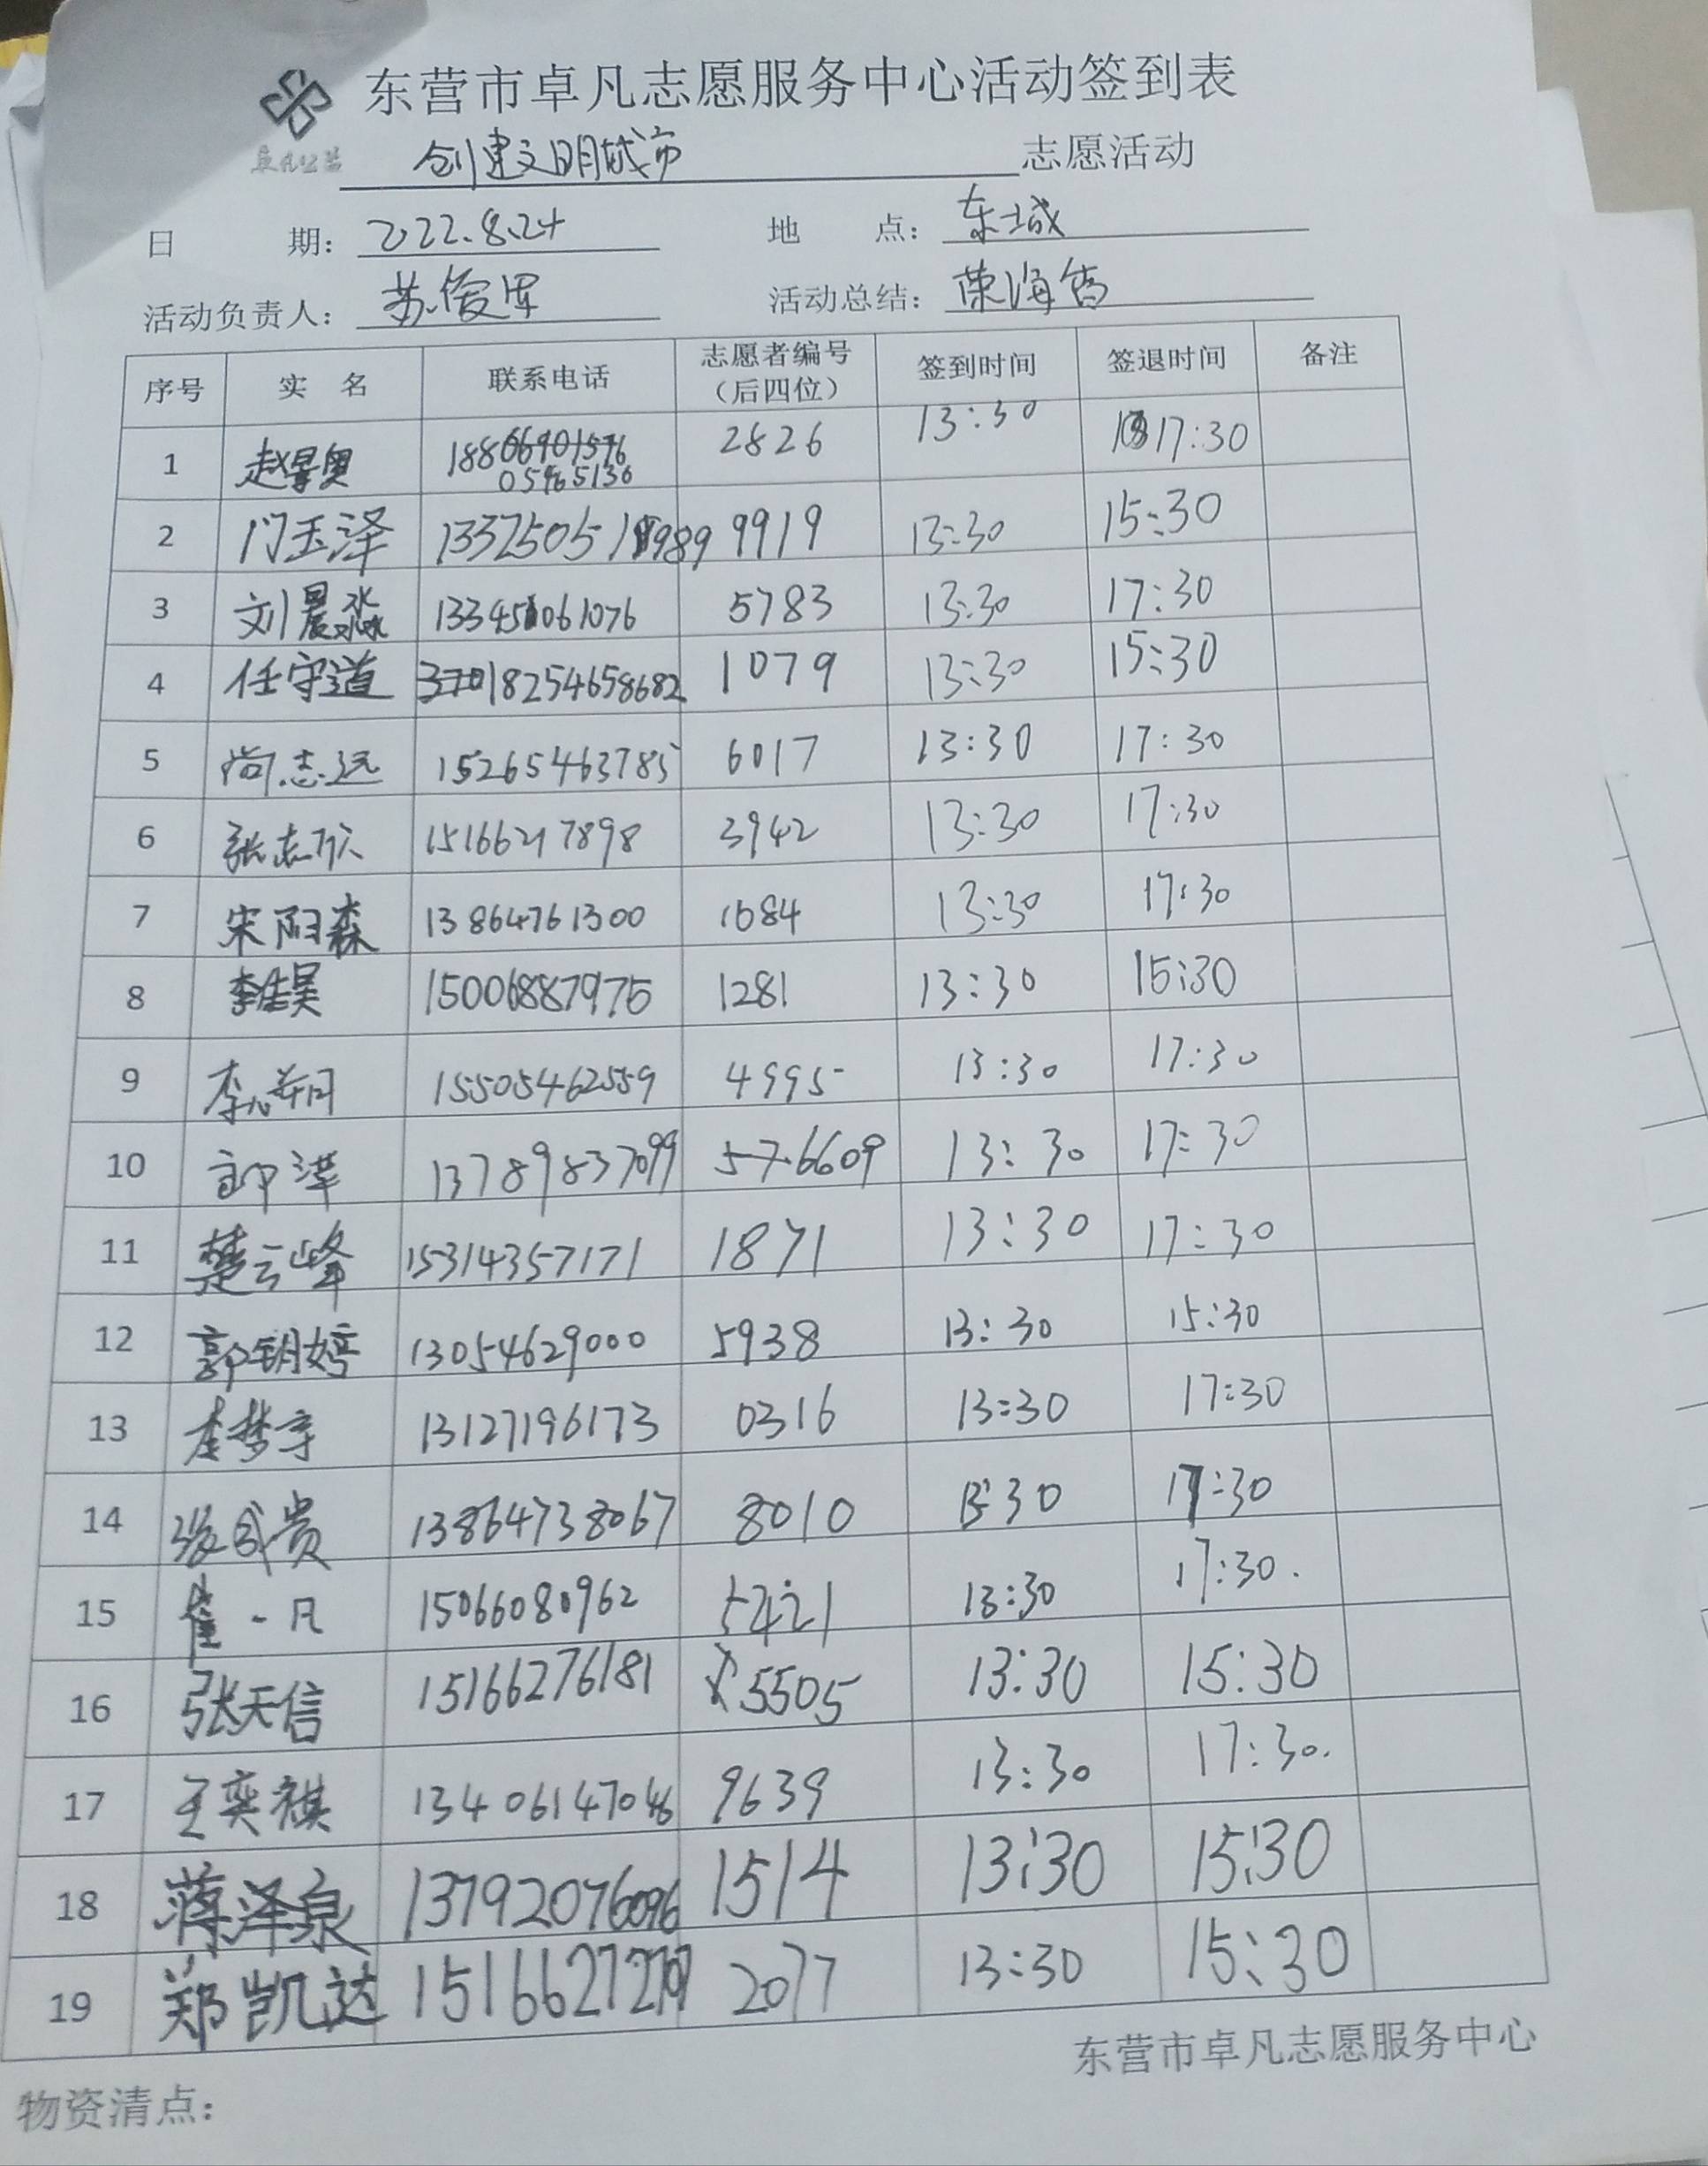 东营市卓凡志愿服务中心活动签到表
卓凡公益
创建文明城市 志愿活动
日 期: 2022.8.24 地 点: 东城
活动负责人: 苏俊军 活动总结: 荣海香
序号 实 名 联系电话 志愿者编号(后四位) 签到时间 签退时间 备注
1 赵昱奥 188 05465136 2826 13:30 17:30
2 门玉泽 9919 13:30 15:30
3 刘晨淼 5783 13:30 17:30
4 任守道 18254658682 1079 13:30 15:30
5 尚志远 15265463785 6017 13:30 17:30
6 张志欣 15166217898 3942 13:30 17:30
7 宋阳森 13864761300 1684 13:30 17:30
8 李佳昊 15006887975 1281 13:30 15:30
9 15505462559 4995 13:30 17:30
10 泽 13789837099 6609 13:30 17:30
11 楚云峰 15314357171 1871 13:30 17:30
12 郭钥婷 13054629000 5938 13:30 15:30
13 李梦宇 13127196173 0316 13:30 17:30
14 贵 13864738067 8010 13:30 17:30
15 崔一凡 15066080962 5421 13:30 17:30.
16 张天信 15166276181 5505 13:30 15:30
17 王奕祺 13406147046 9639 13:30 17:30.
18 蒋泽泉 13792076096 1514 13:30 15:30
19 郑凯达 2077 13:30 15:30
东营市卓凡志愿服务中心
物资清点: